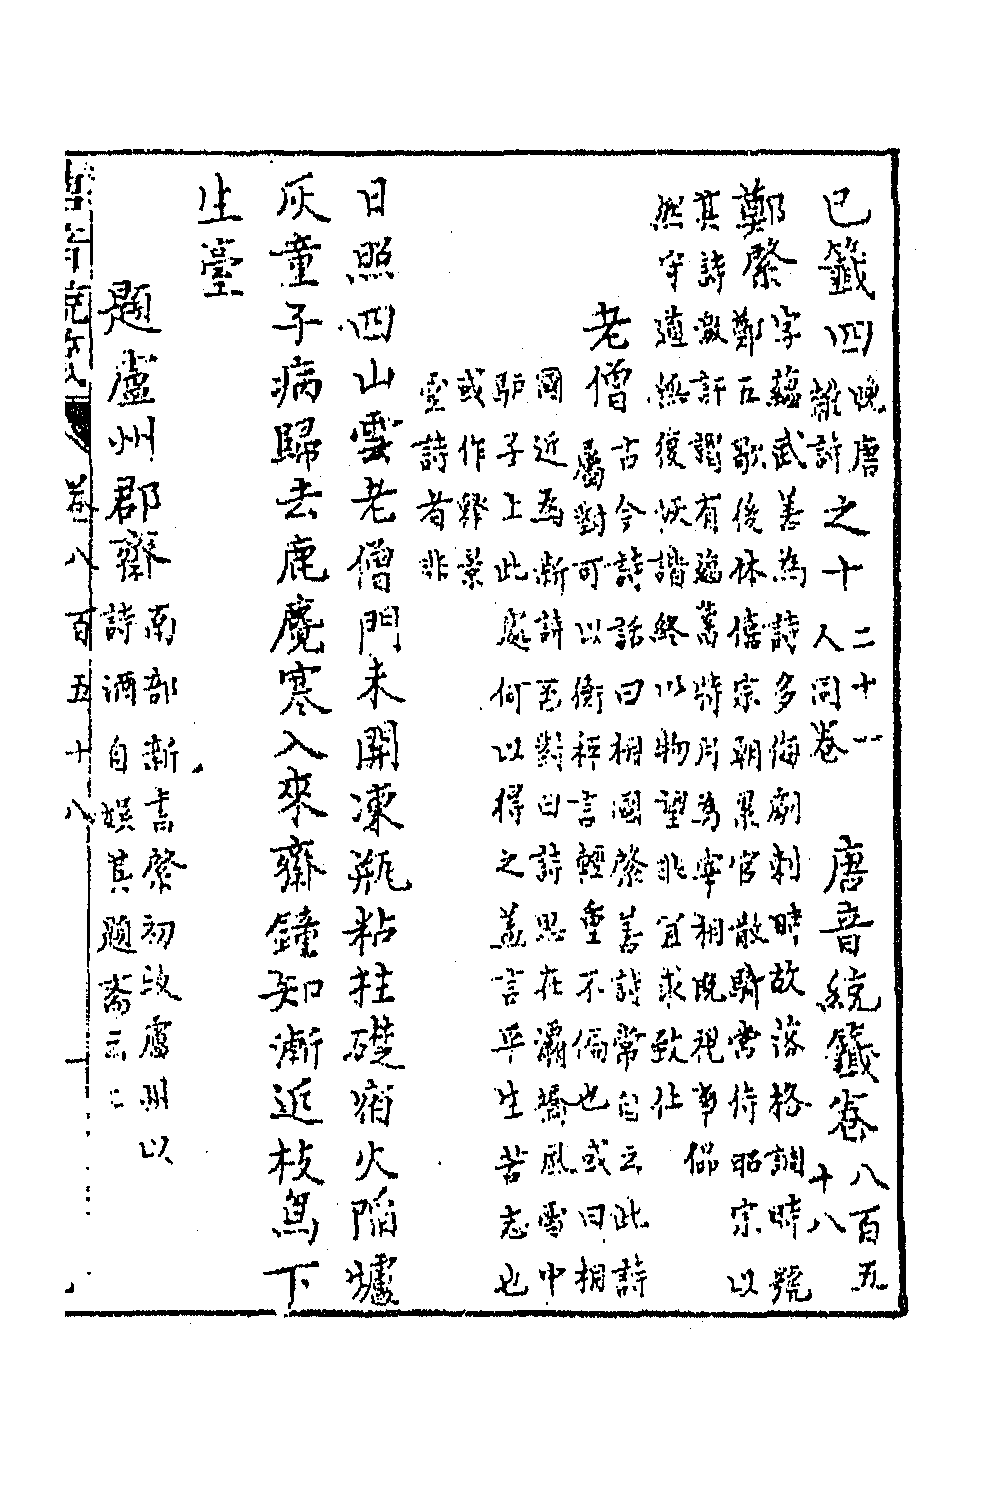 已籤四 晚唐
雜詩 之十 二十一
人同卷 唐音統籤卷 八百五
十八
鄭綮 字蘊武善為詩多侮劇刺時故落格調時號
鄭五歇後体僖宗朝累官散騎常侍昭宗以
其詩激訐謂有蘊蓄特用為宰相既視事偘
然守道無復恢諧終以物望非宜求致仕
老僧 古今詩話曰相國綮善詩常自云此詩
屬對可以衡秤言輕重不偏也或曰相
國近為新詩否對曰詩思在灞橋風雪中
驴子上此處何以得之蓋言平生苦志也
或作釋景
雲詩者非
日照四山雲老僧門未開凍瓶粘柱礎宿火陷爐
灰童子病歸去鹿麑寒入來齋鐘知漸近枝鳥下
生臺
題盧州郡齋 南部新書綮初政廬州以
詩酒自娛其題斋云云
卷八百五十八 一